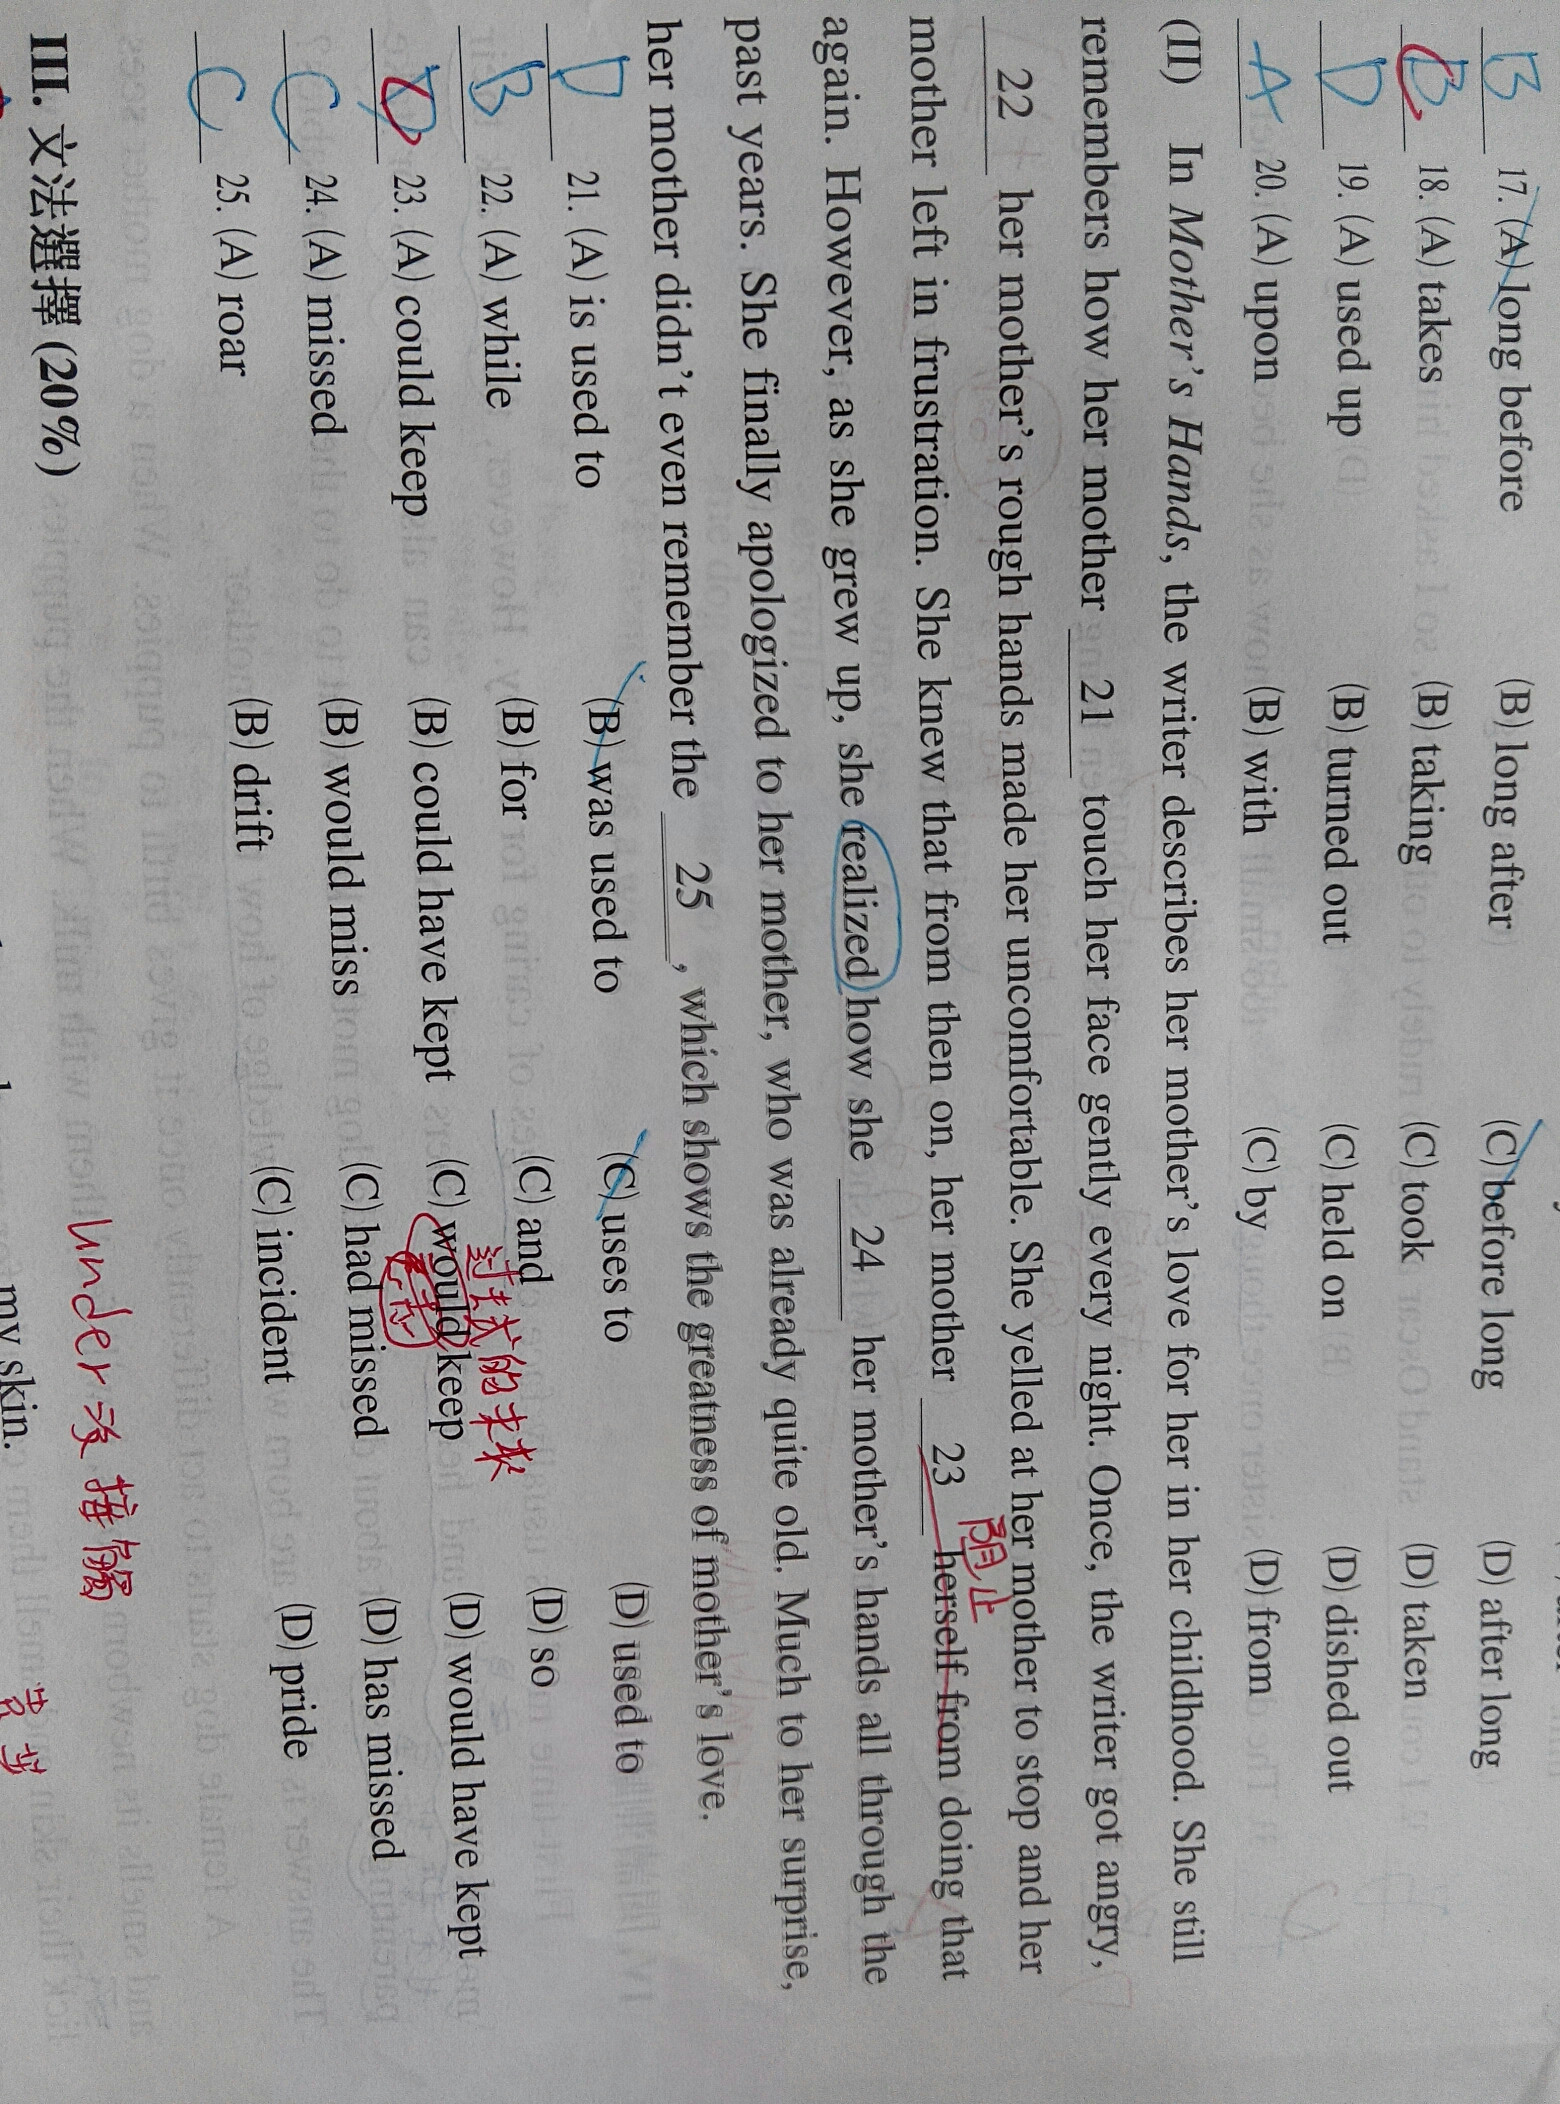 B 17. (A) long before (B) long after (C) before long (D) after long
C 18. (A) takes (B) taking (C) took (D) taken
D 19. (A) used up (B) turned out (C) held on (D) dished out
A 20. (A) upon (B) with (C) by (D) from
(II) In Mother's Hands, the writer describes her mother's love for her in her childhood. She still
remembers how her mother 21 touch her face gently every night. Once, the writer got angry,
22 her mother's rough hands made her uncomfortable. She yelled at her mother to stop and her
阻止
mother left in frustration. She knew that from then on, her mother 23 herself from doing that
again. However, as she grew up, she realized how she 24 her mother's hands all through the
past years. She finally apologized to her mother, who was already quite old. Much to her surprise,
her mother didn't even remember the 25, which shows the greatness of mother's love.
D 21. (A) is used to (B) was used to (C) uses to (D) used to
B 22. (A) while (B) for (C) and (D) so
對過去的未來
C 23. (A) could keep (B) could have kept (C) would keep (D) would have kept
C 24. (A) missed (B) would miss (C) had missed (D) has missed
C 25. (A) roar (B) drift (C) incident (D) pride
under → 沒接觸
III. 文法選擇 (20%)
my skin.